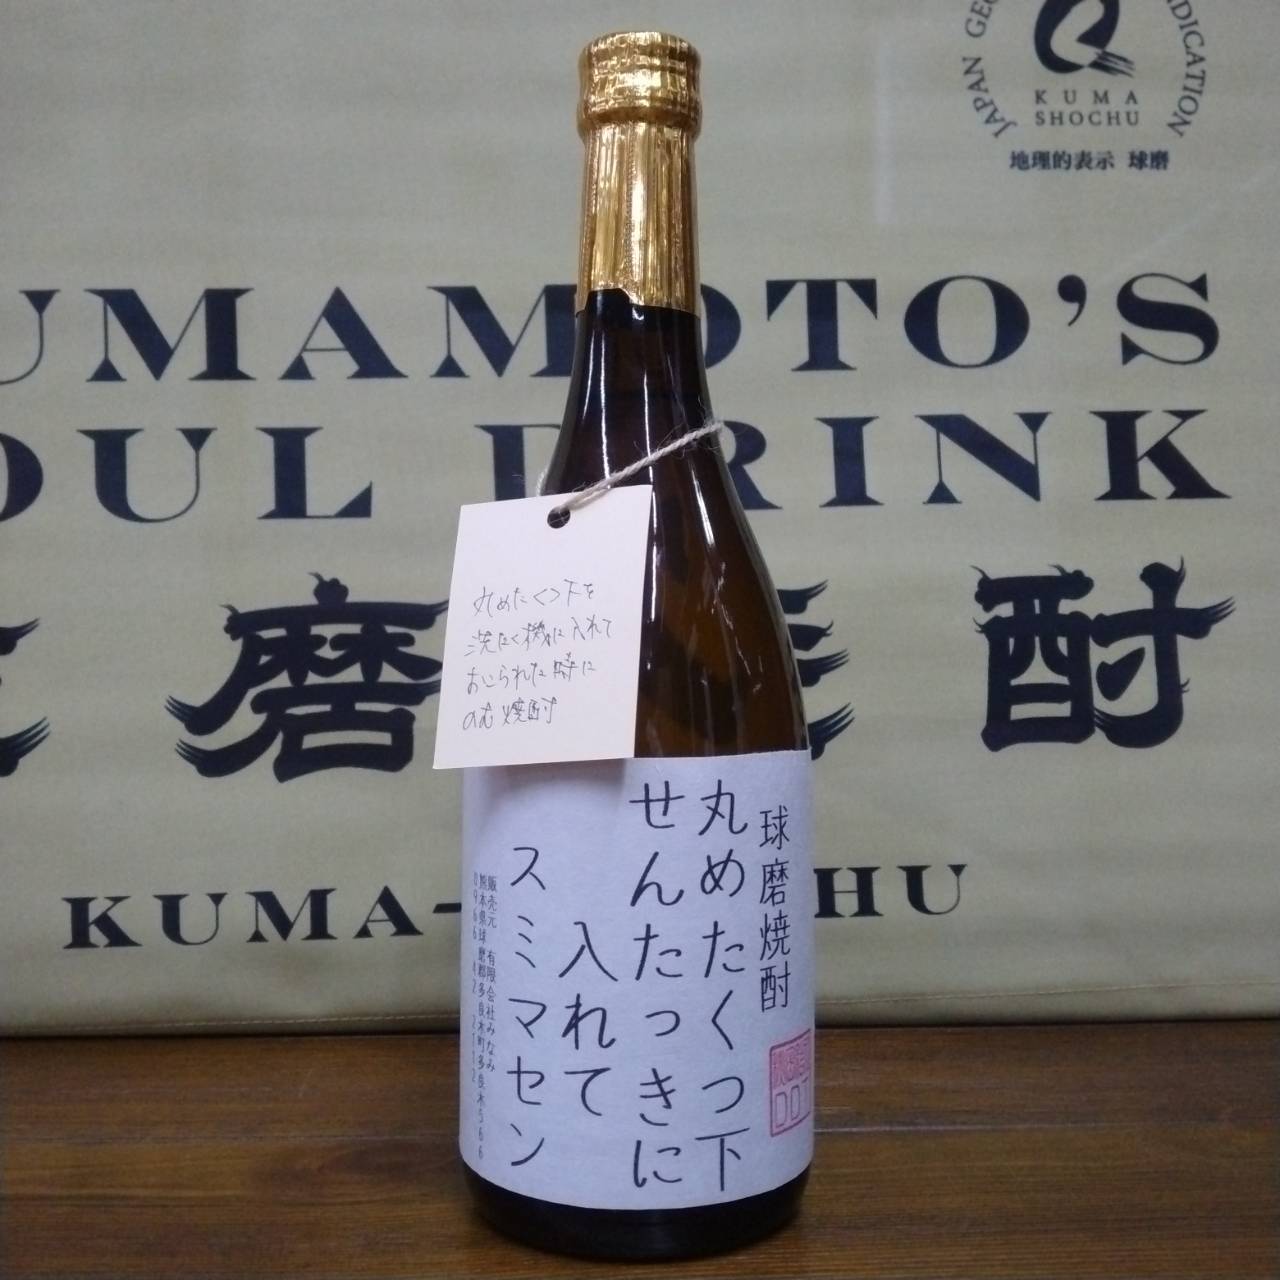 JAPAN GEO
DICATION
KUMA
SHOCHU
地理的表示 球磨
UMAMOTO'S
OUL DRINK
磨
酎
KUMA-
HU
丸めたくつ下を
洗たく機に入れて
おこられた時に
のむ焼酎
球磨焼酎
丸めたくつ下
せんたっきに
入れて
スミマセン
販売元 有限会社みなみ
熊本県球磨郡多良木町多良木566
0966 42 2112